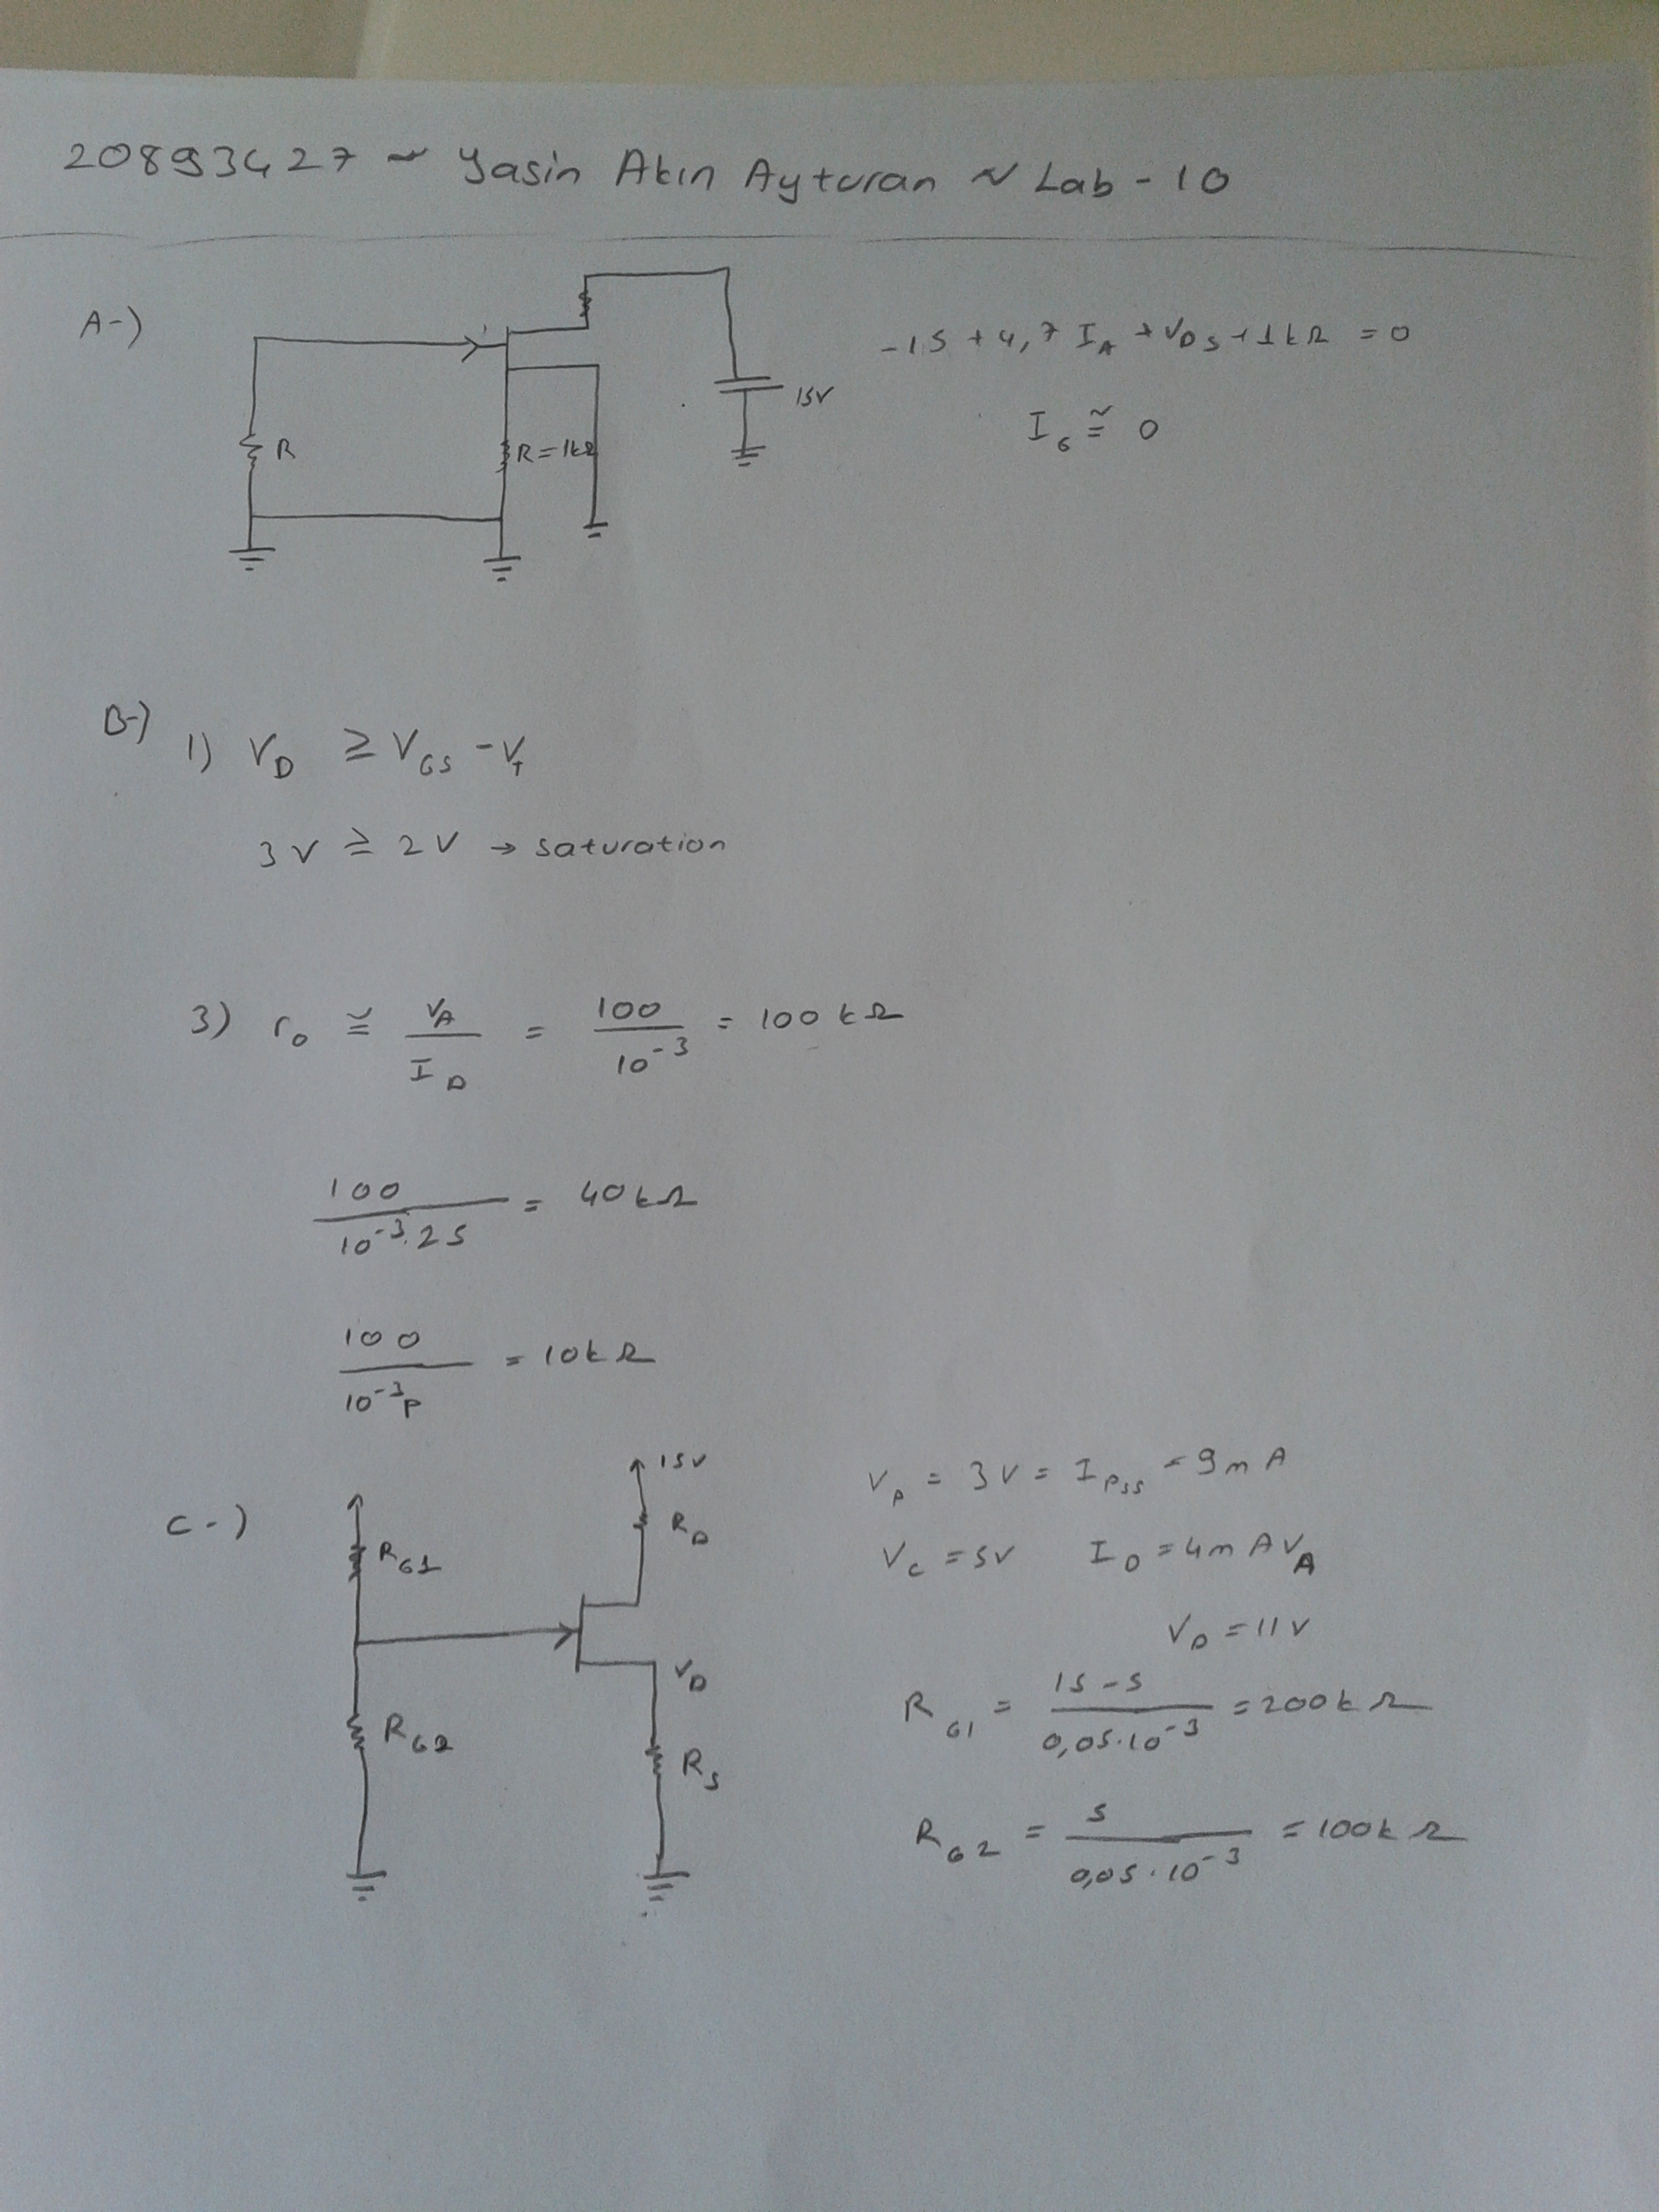 20893427 ~ Yasin Akın Ayturan ~ Lab-10
A-)
-15 + 4,7 I_A + V_DS + 1kΩ = 0
15V
I_G ≅ 0
R
R=1kΩ
B-)
1) V_D ≥ V_GS - V_T
3V ≥ 2V → saturation
3) r_o ≅ V_A / I_D = 100 / 10^-3 = 100 kΩ
100 / 10^-3.25 = 40kΩ
100 / 10^-3 p = 10kΩ
C-)
15V
R_D
R_G1
V_D
R_G2
R_S
V_P = 3V = I_PSS = 9mA
V_C = 5V I_D = 4mA V_A
V_D = 11V
R_G1 = 15-5 / 0,05.10^-3 = 200kΩ
R_G2 = 5 / 0,05.10^-3 = 100kΩ